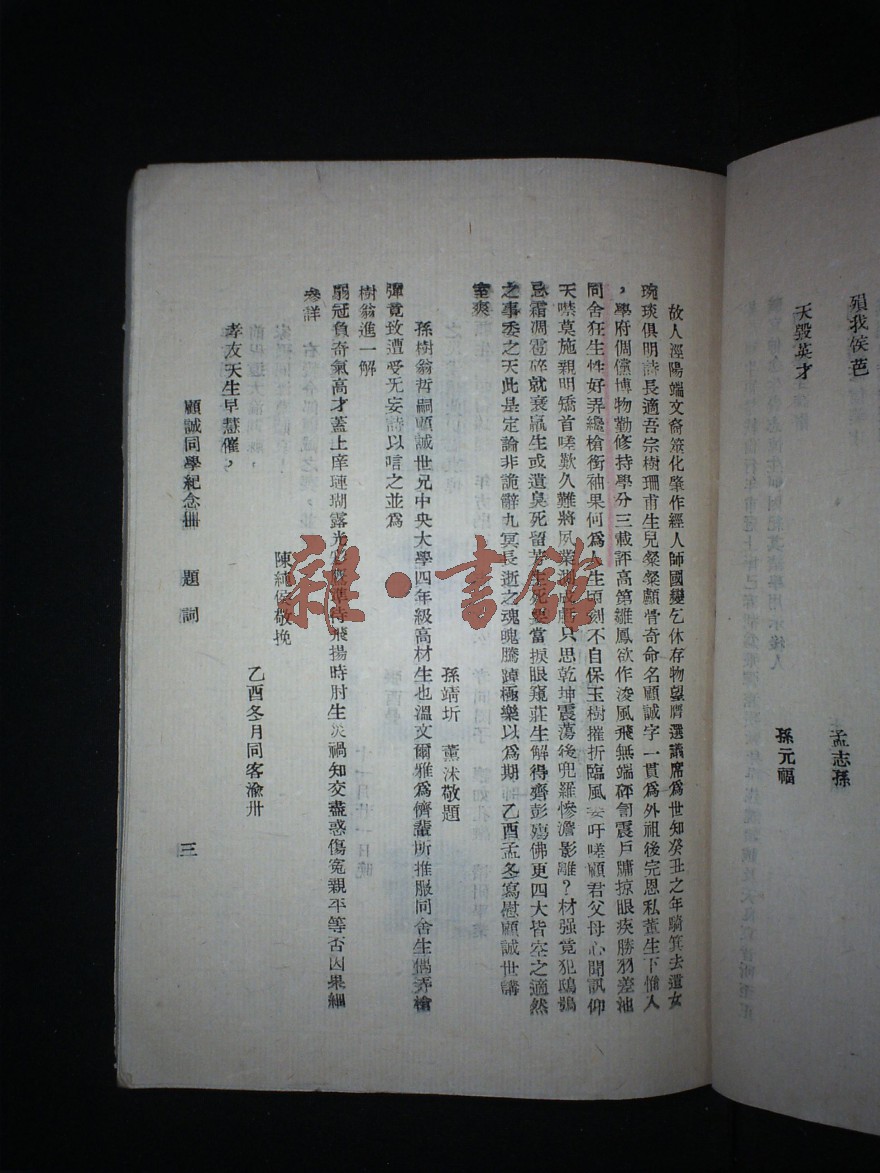 殞我侯芭
孟志孫
天毀英才
孫元福
故人涇陽端文裔筞化肇作經人師國變乞休存物望膺選議席為世知癸丑之年騎箕去遺女
琬琰俱明詩長適吾宗樹珊甫生兒粲粲顱骨奇命名顧誠字一貫為外祖後完恩私董生下惟人
，學府倜儻博物勤修持學分三載評高第雛鳳欲作凌風飛無端砰訇震戶牖掠眼疾勝羽差池
同舍狂生性好弄纔槍銜袖果何為人生頃刻不自保玉樹摧折臨風姿吁嗟顧君父母心聞訊仰
天噤莫施親朋矯首嗟歎久難將夙業測成虧只思乾坤震蕩後兜羅慘澹影離？材强竟犯鴟鴞
忌霜凋雹碎就衰羸生或遺臭死留芳生死要當捩眼窺莊生解得齊彭殤佛更四大皆空之適然
之事委之天此是定論非詭辭九冥長逝之魂魄騰踔極樂以為期 乙酉孟冬寫慰顧誠世講
靈爽
孫靖圻 董沫敬題
孫樹翁哲嗣顧誠世兄中央大學四年級高材生也溫文爾雅為儕輩所推服同舍生偶弄槍
彈竟致遭受无妄詩以唁之並為
樹翁進一解
弱冠負奇氣高才蓋上庠璉瑚露光準待飛揚時肘生災禍知交盡惑傷冤親平等否因果細
參詳
陳純侯敬挽
孝友天生早慧催，
乙酉冬月同客渝卅
顧誠同學紀念冊 題詞 三
雜·書館